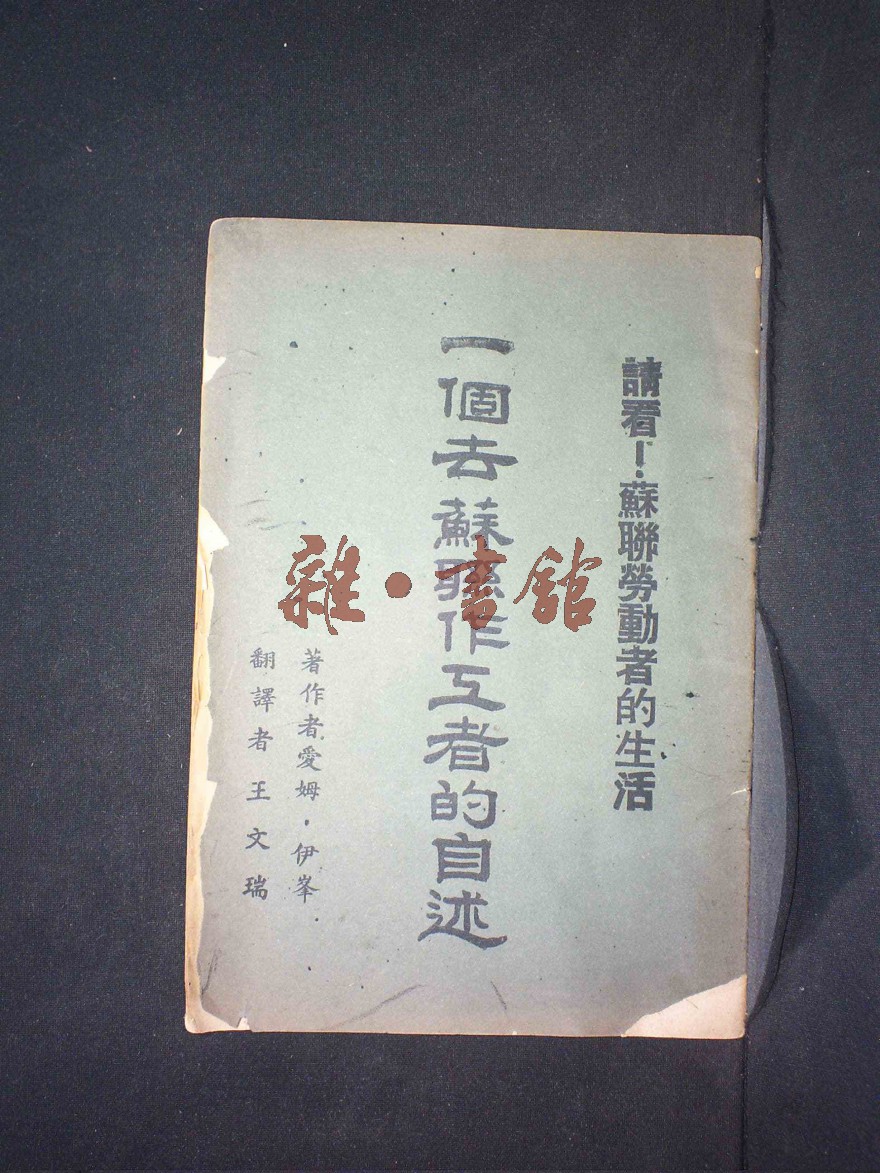 請看！蘇聯勞動者的生活
一個去蘇聯作工者的自述
著作者愛姆·伊峯
翻譯者王文瑞
雜·書館